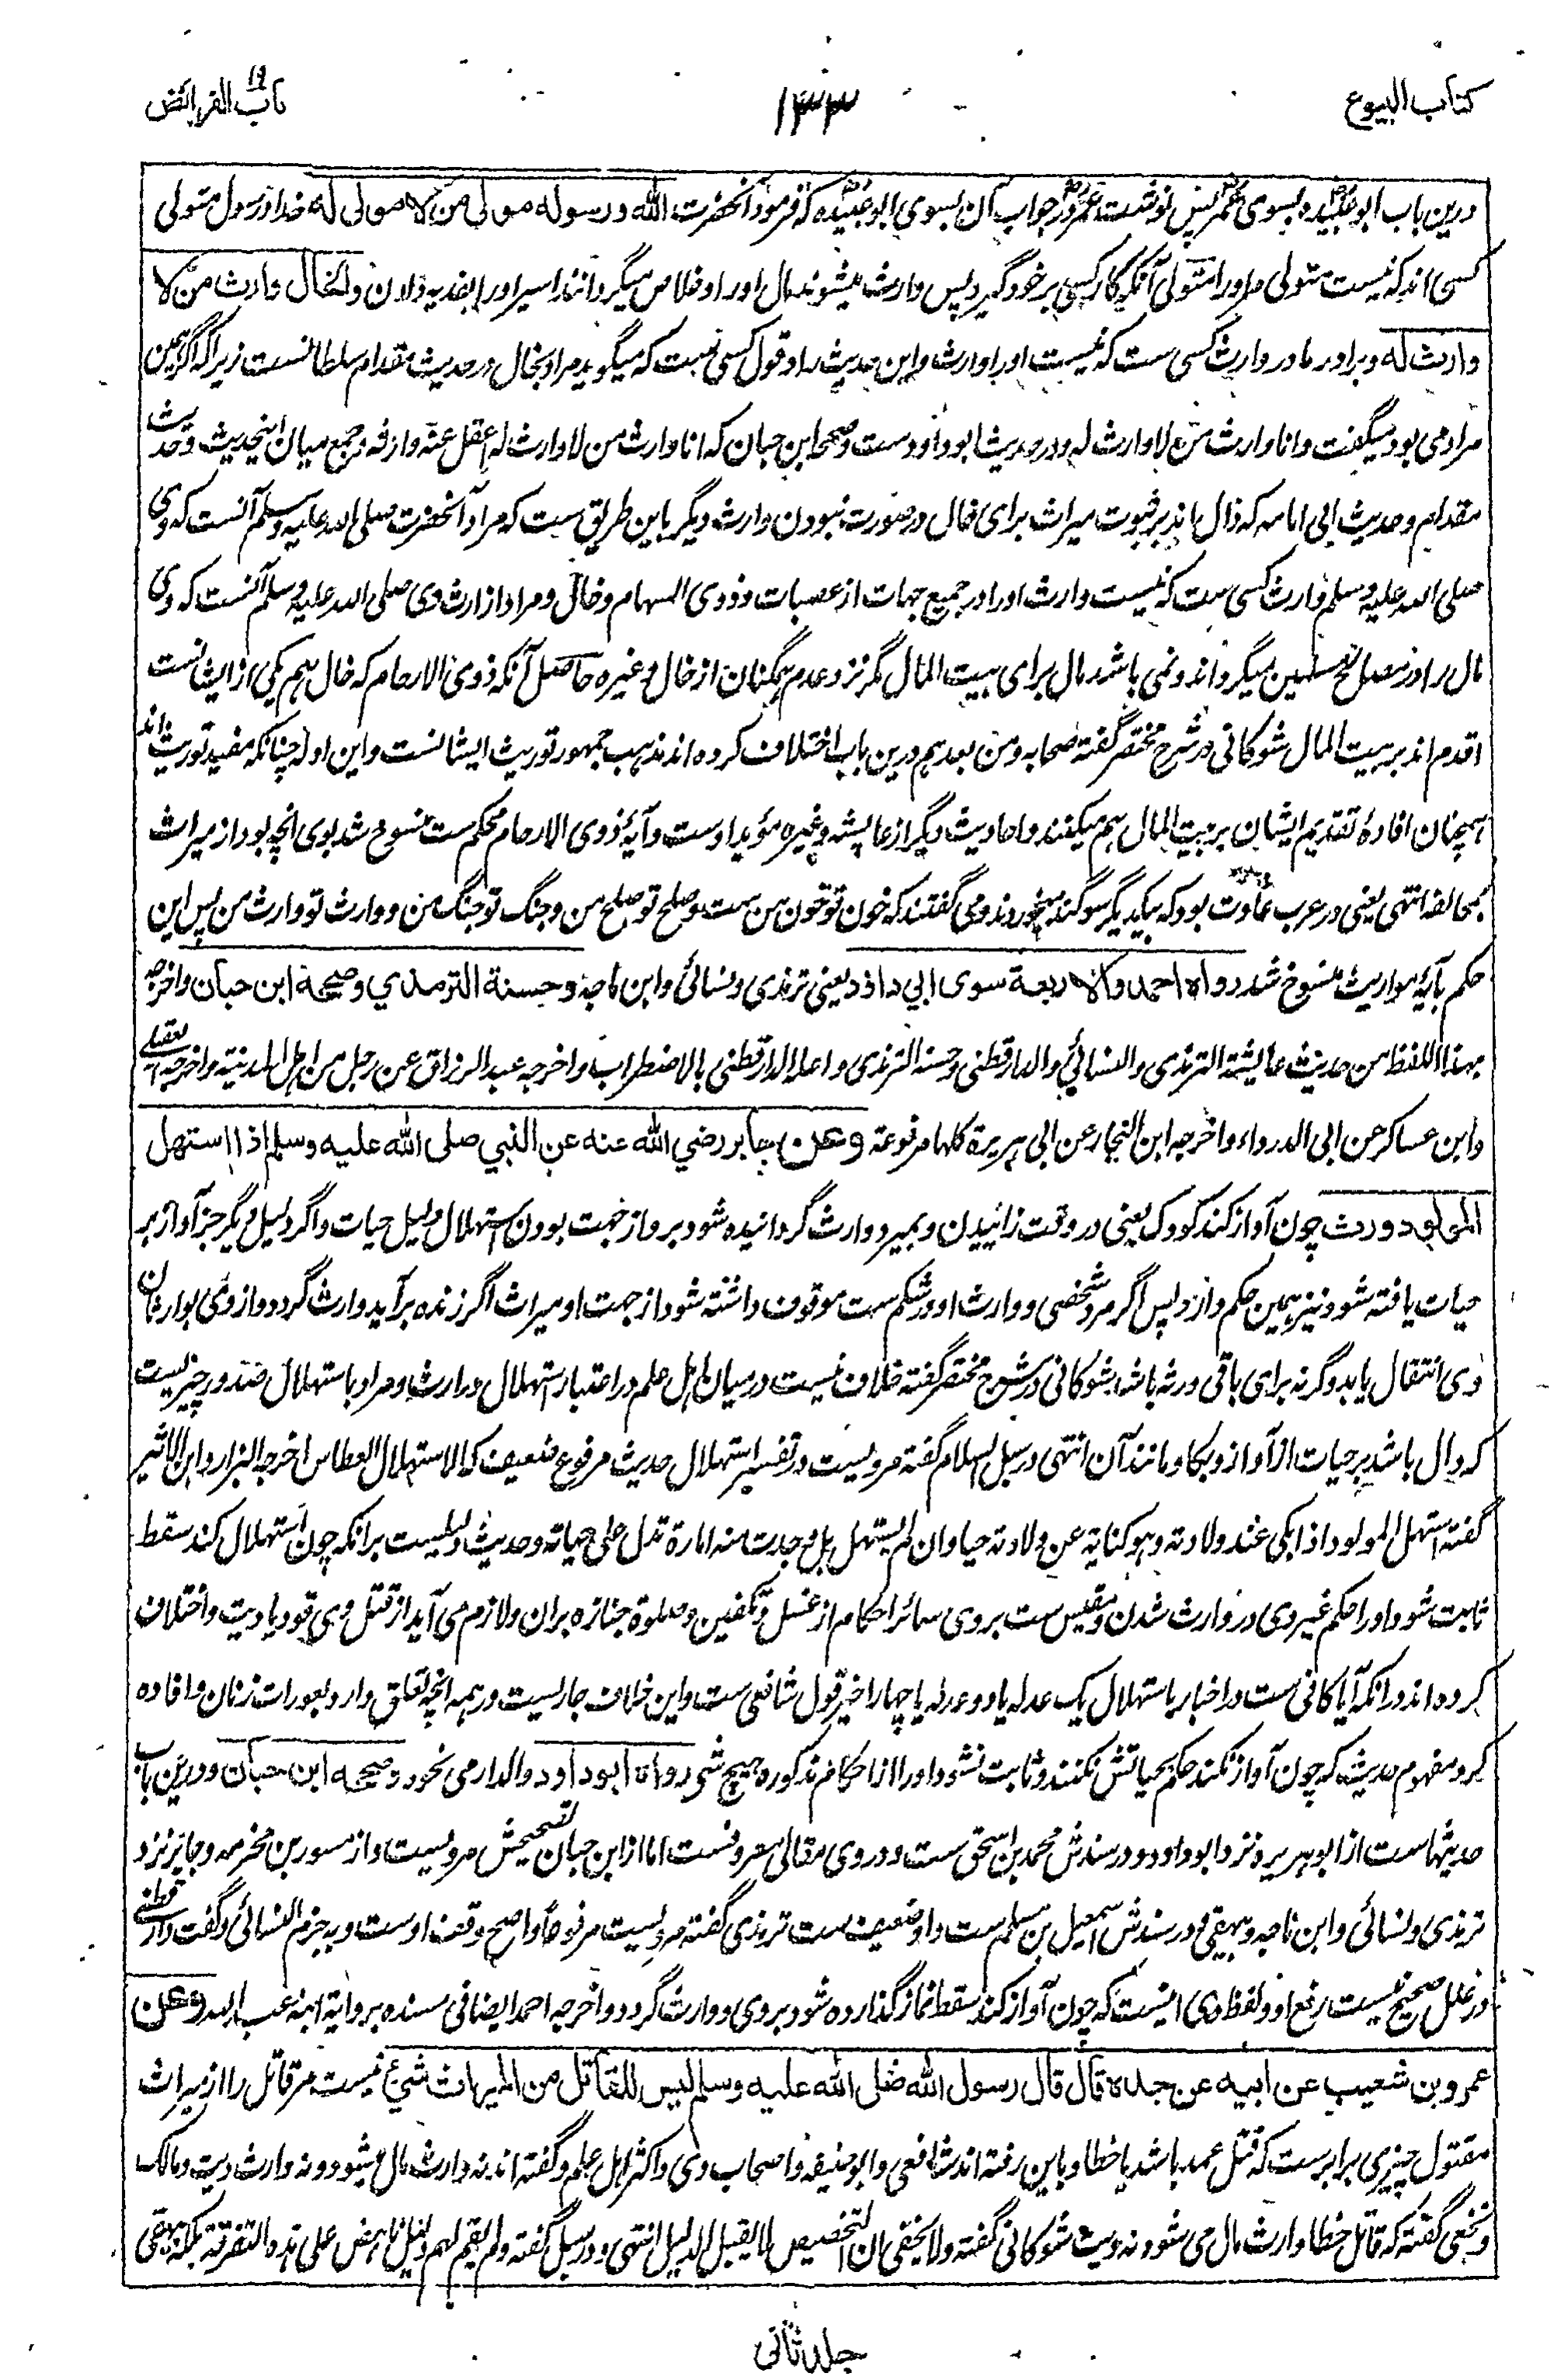 کتاب البیوع
۱۳۳
باب الفرائض
درین باب ابو عبیده بسوی عمر پس نوشت عمر در جواب آن بسوی ابو عبیده که فرمود آنحضرت الله ورسوله مولى من لا مولى له خدا و رسول متولی
کسی اند که نیست متولی مر او را متولی آنکه کار کسی بر خود گیرد پس وارث میشوند مال او را و خلاص میگردانند اسیر او را بفدیه دادن والخال وارث من لا
وارث له و برادر مادر وارث کسی ست که نیست او را وارث و این حدیث رد قول کسی ست که میگوید مراد بخال در حدیث مقدام سلطانست زیرا که اگر همین
مراد می بود میگفت وانا وارث من لا وارث له و در حدیث ابو داود ست و صححه ابن حبان که انا وارث من لا وارث له اعقل عنه وارثه و جمع میان اینحدیث و حدیث
مقدام و حدیث ابی امامه که دال اند بر ثبوت میراث برای خال در صورت نبودن وارث دیگر باین طریق ست که مراد آنحضرت صلی الله علیه وسلم آنست که وی
صلی الله علیه وسلم وارث کسی ست که نیست وارث او را در جمیع جهات از عصبات و ذوی السهام و خال و مراد از ارث وی صلی الله علیه وسلم آنست که وی
مال را در مصالح مسلمین میگرداند و نمی باشد مال برای بیت المال مگر نزد عدم همگنان از خال و غیره حاصل آنکه ذوی الارحام که خال هم یکی از ایشانست
اقدم اند بر بیت المال شوکانی در شرح مختصر گفته صحابه و من بعدهم درین باب اختلاف کرده اند مذهب جمهور توریث ایشانست و این ادله چنانکه مفید توریث اند
همچنان افادهٔ تقدیم ایشان بر بیت المال هم میکنند و احادیث دیگر از عایشه و غیره مؤید اوست و آیهٔ ذوی الارحام محکم ست منسوخ شد بوی انچه بود از میراث
بمحالفه انتهی یعنی در عرب عادت بود که بیکدیگر سوگند میخوردند و می گفتند که خون تو خون من ست و صلح تو صلح من و جنگ تو جنگ من و وارث تو وارث من پس این
حکم بآیهٔ مواریث منسوخ شد رواه احمد والاربعة سوى ابي داود یعنی ترمذی و نسائی و ابن ماجه وحسنه الترمذي وصححه ابن حبان واخرجه
بهذا اللفظ من حدیث عایشة الترمذی والنسائی والدارقطنی وحسنه الترمذی واعله الدارقطنی بالاضطراب واخرجه عبدالرزاق عن رجل من اهل المدینة واخرجه العقیلی
وابن عساکر عن ابی الدرداء واخرجه ابن النجار عن ابی هریرة کلها مرفوعة وعن جابر رضي الله عنه عن النبي صلى الله عليه وسلم اذا استهل
المولود ورث چون آواز کند کودک یعنی در وقت زائیدن و بمیرد وارث گردانیده شود بر و از جهت بودن استهلال دلیل حیات و اگر دلیل دیگر جز آواز بر
حیات یافته شود نیز همین حکم دارد پس اگر مرد شخصی و وارث او در شکم ست موقوف داشته شود از جهت او میراث اگر زنده برآید وارث گردد و از وی بوارثان
وی انتقال یابد و گرنه برای باقی ورثه باشد شوکانی در شرح مختصر گفته خلاف نیست در میان اهل علم در اعتبار استهلال در ارث و مراد باستهلال صدور چیزیست
که دال باشد بر حیات از آواز و بکا و مانند آن انتهی در سبل السلام گفته مرویست در تفسیر استهلال حدیث مرفوع ضعیف که الاستهلال العطاس اخرجه البزار و ابن الاثیر
گفته استهل المولود اذا بکی عند ولادته و هو کنایة عن ولادته حیا وان لم یستهل بل وجدت منه امارة تدل علی حیاته و حدیث دلیلست برانکه چون استهلال کند سقط
ثابت شود او را حکم غیر وی در وارث شدن و مقیس ست بروی سائر احکام از غسل و تکفین و صلوة جنازه بران و لازم می آید از قتل وی قود یا دیت و اختلاف
کرده اند در آنکه آیا کافی ست در اخبار باستهلال یک عدله یا دو عدله یا چهار اخیر قول شافعی ست و این خلاف جاریست در همه انچه تعلق دارد بعورات زنان و افاده
کرد مفهوم حدیث که چون آواز نکند حکم بحیاتش نکنند و ثابت نشود او را از احکام مذکوره هیچ شی رواه ابوداود والدارمی نحوه وصححه ابن حبان و درین باب
حدیثهاست از ابو هریره نزد ابو داود و در سندش محمد بن اسحق ست و در وی مقالی معروفست اما از ابن حبان تصحیحش مرویست و از مسور بن مخرمه و جابر نزد
ترمذی و نسائی و ابن ماجه و بیهقی و در سندش اسمعیل بن مسلم ست و او ضعیف ست ترمذی گفته مرویست مرفوعا و اصح وقف اوست و به جزم النسائی و گفت دارقطنی
در علل صحیح نیست رفع او و لفظ وی اینست که چون آواز کند سقط نماز گذارده شود بروی و وارث گردد و اخرجه احمد ایضا فی مسنده بروایة ابنه عبد الله وعن
عمرو بن شعيب عن ابيه عن جده قال قال رسول الله صلى الله عليه وسلم ليس للقاتل من الميراث شيئ نیست مر قاتل را از میراث
مقتول چیزی برابر ست که قتل عمد باشد یا خطا و باین رفته اند شافعی و ابو حنیفه و اصحاب وی و اکثر اهل علم و گفته اند نه وارث مال میشود و نه وارث دیت و مالک
و نخعی گفته که قاتل خطا وارث مال می شود نه دیت شوکانی گفته ولا یخفی ان التخصیص لا یقبل الا بدلیل انتهی و در سبل گفته ولم یقم لهم دلیل ناهض علی هذه التفرقة بلکه بیهقی
جلد ثانی